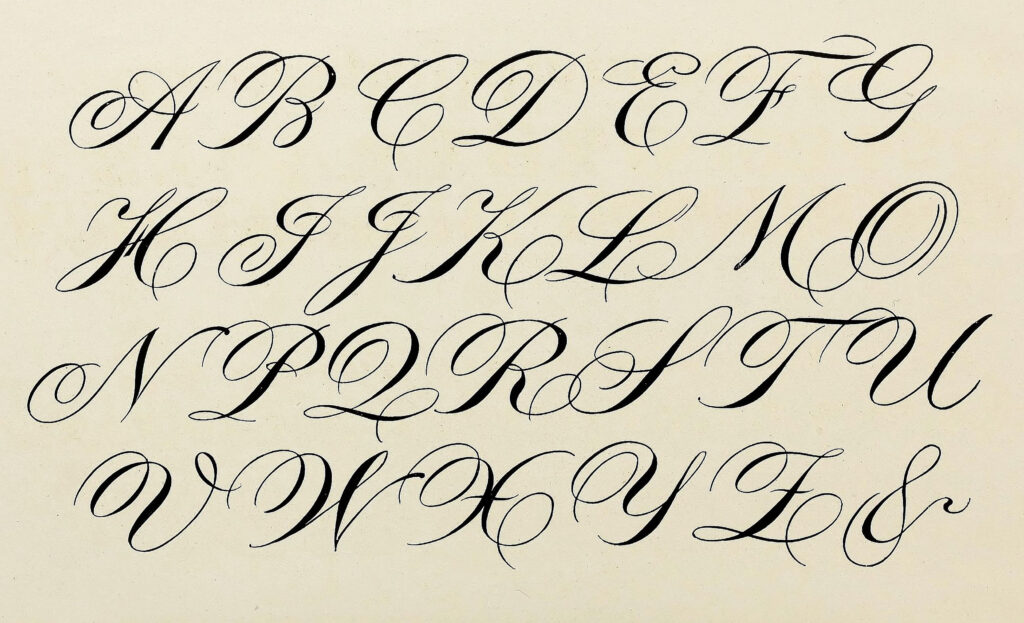 A B C D E F G
H I J K L M O
N P Q R S T U
V W X Y Z &